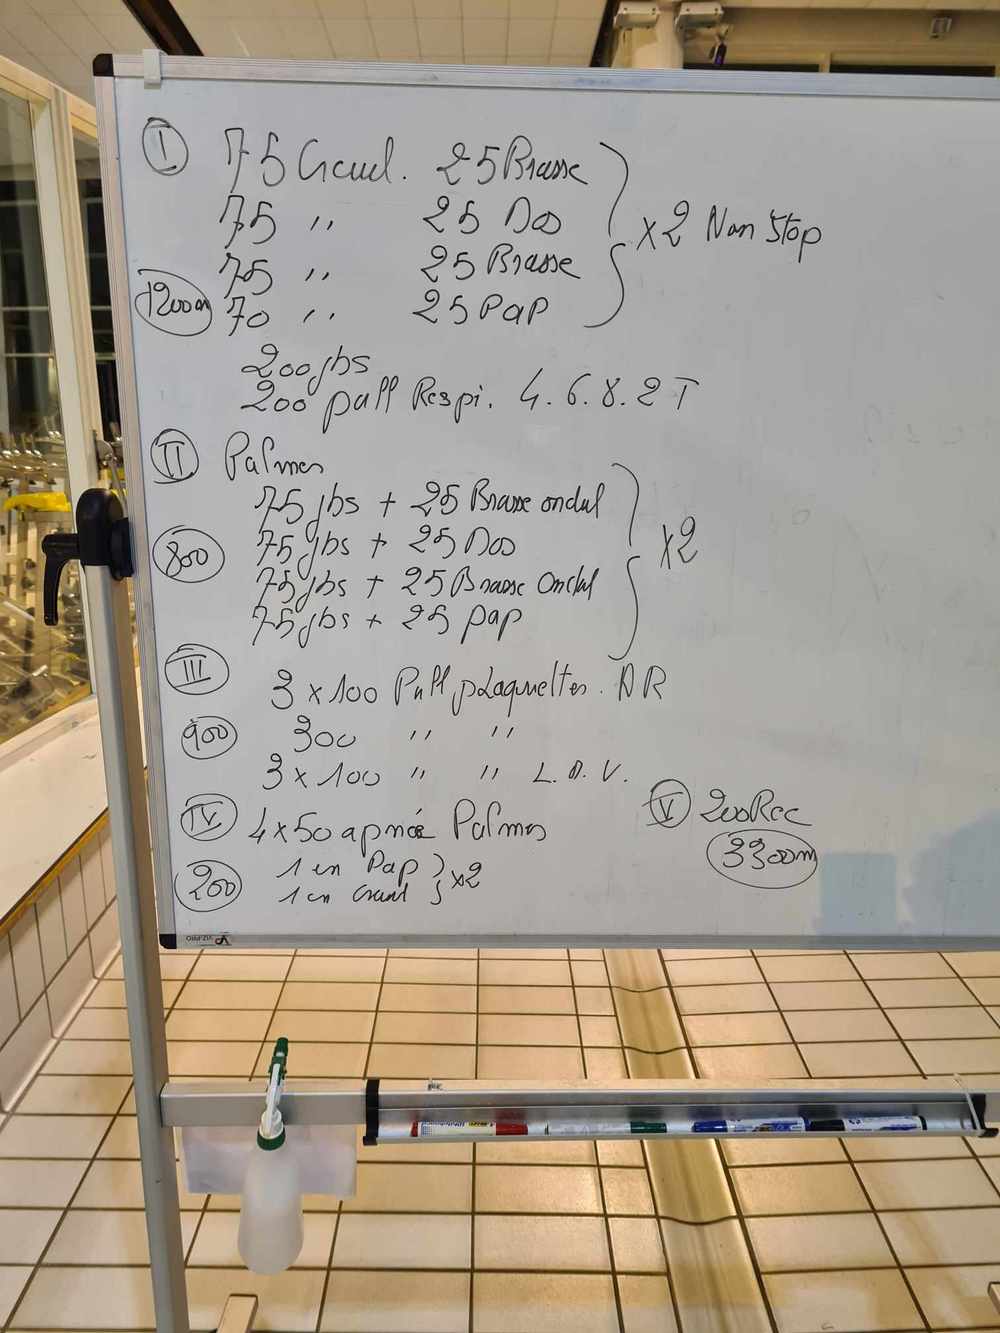 I 75 Craul. 25 Brasse
75 " 25 Dos
x2 Non Stop
75 " 25 Brasse
1200m 70 " 25 Pap
200 jbs
200 pull Respi. 4. 6. 8. 2 T
II Palmes
75 jbs + 25 Brasse ondul
800 75 jbs + 25 Dos
x2
75 jbs + 25 Brasse ondul
75 jbs + 25 pap
III 3 x 100 Pull plaquettes. AR
900 300 " "
3 x 100 " " L. A. V.
IV 4x50 apnée Palmes
200 1 en Pap
1 en Craul
x2
V 200 Rec
3300m
VIZ-PRO